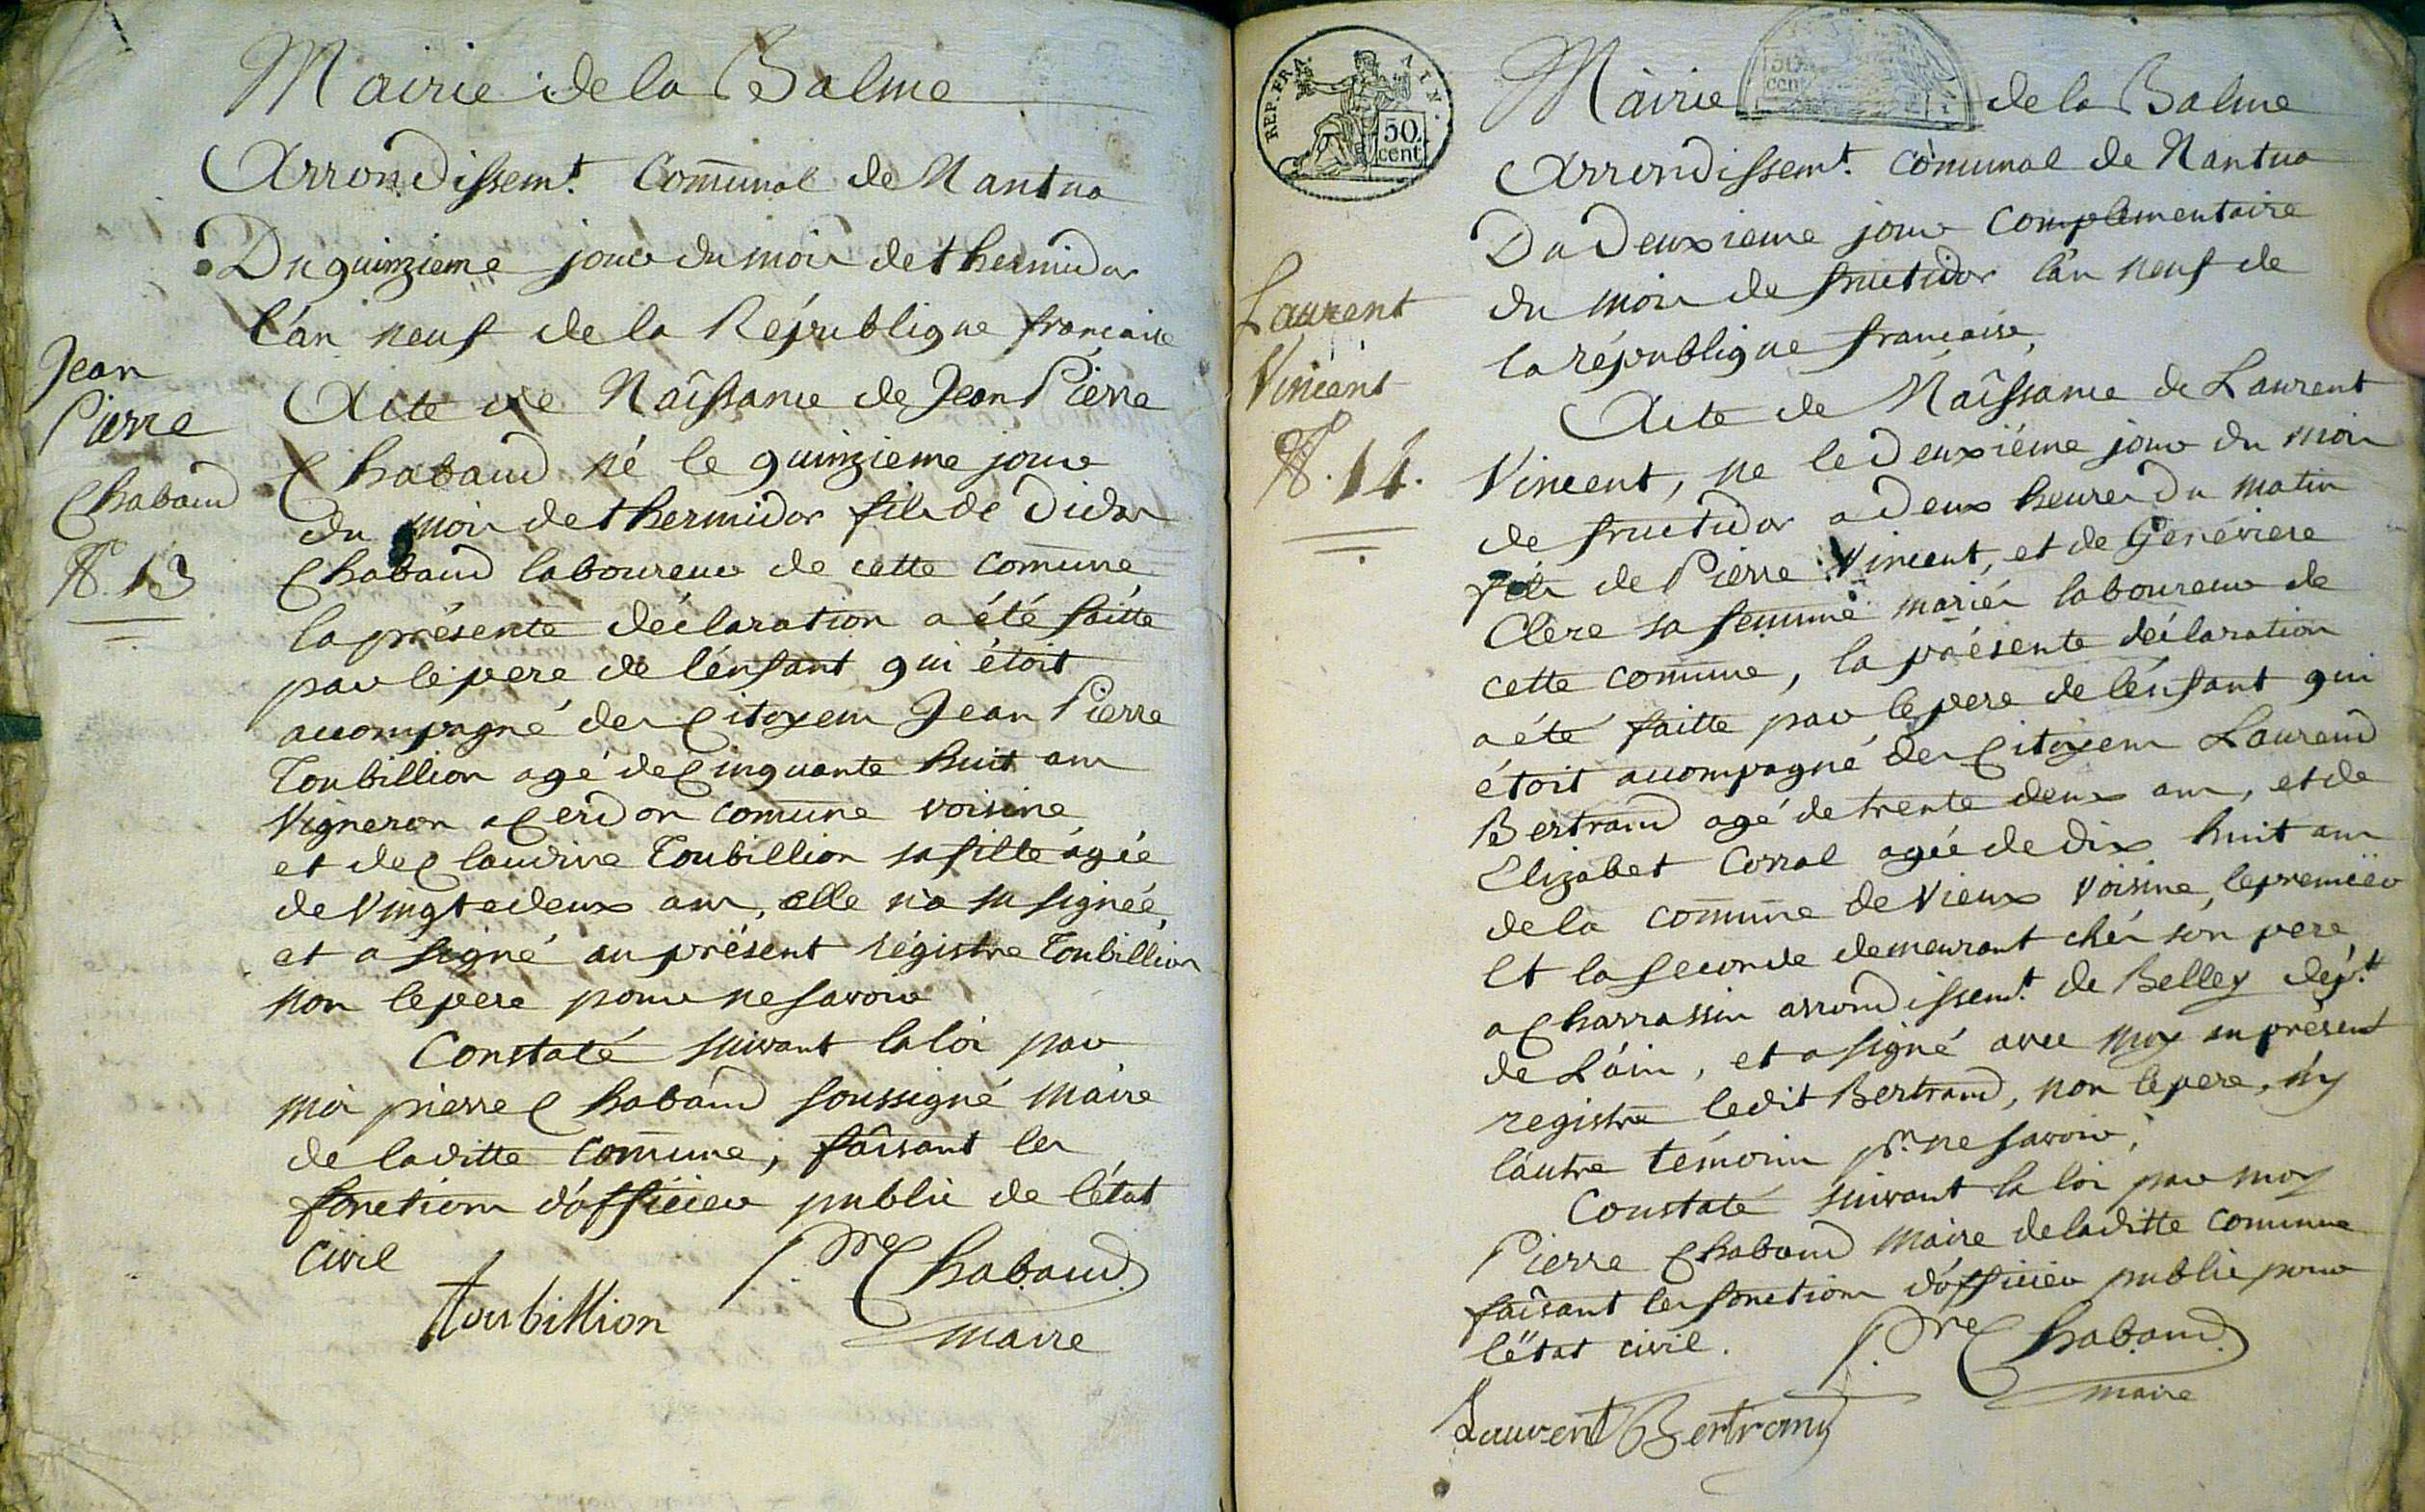 Mairie de la Balme
Arrondissemt. Comunal de Nantua
Du quinzieme jour du mois de thermidor
l'an neuf de la République francaise
Jean
Pierre
Chabaud
N. 13
Acte de Naissance de Jean Pierre
Chabaud né le quinzieme jour
du mois de thermidor fils de Didier
Chabaud laboureur de cette comune
la présente déclaration a été faitte
par le pere de l'enfant qui étoit
accompagné des Citoyens Jean Pierre
Toubillion agé de Cinquante huit ans
Vigneron a Cerdon comune voisine
et de Claudine Toubillion sa fille agée
de Vingt deux ans, elle n'a su signée,
et a signé au présent régistre Toubillion
non le pere pour ne savoir
Constaté suivant la loi par
moi pierre Chabaud soussigné maire
de laditte comune, faisant les
fonctions d'officier public de l'état
civil
Pre Chabaud
maire
toubillion
REP. FRA.
50
cent
50
cen
Mairie de la Balme
Arrondissemt. comunal de Nantua
Du Deuxieme jour complementaire
du mois de fructidor l'an neuf de
la république francaise,
Laurent
Vincent
N. 14.
Acte de Naissance de Laurent
Vincent, ne le Deuxiéme jour du mois
de fructidor a Deux heures du matin
fils de Pierre Vincent, et de Genevieve
Clerc sa femme mariés laboureur de
cette comune, la présente déclaration
a été faitte par le pere de l'enfant qui
étoit accompagné des Citoyens Laurend
Bertrand agé de trente deux ans, et de
Elizabet Corral agée de dix huit ans
de la comune de Vieux voisine, le premier
Et la seconde demeurant chés son pere
a Charrassin arrondissemt. de Belley dépt
de L'ain, et a signé avec moy au présent
registre ledit Bertrand, non le pere, ny
l'autre témoin pr. ne savoir,
Constaté suivant la loi par moy
Pierre Chabaud maire de laditte comune
faisant les fonctions d'officier public pour
l'état civil.
Pre Chabaud
maire
Laurent Bertrand